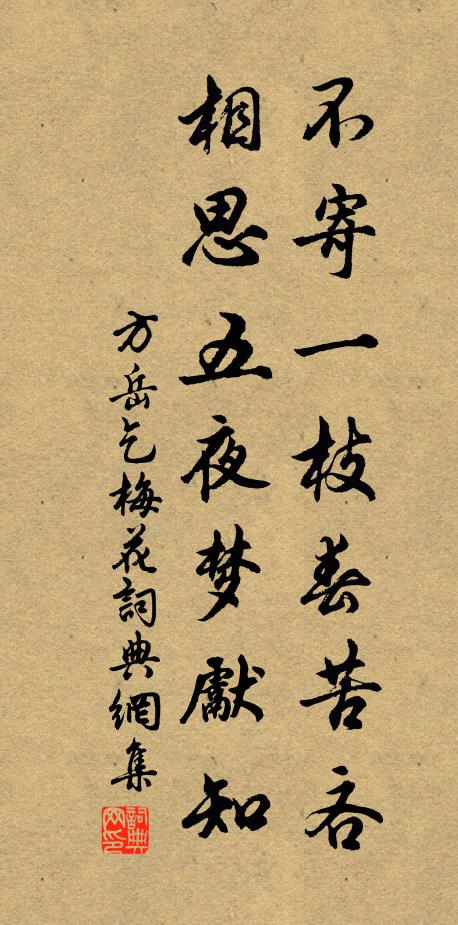 不寄一枝春苦吝
相思五夜梦獻知
方岳乞梅花詞典網集
詞典网印